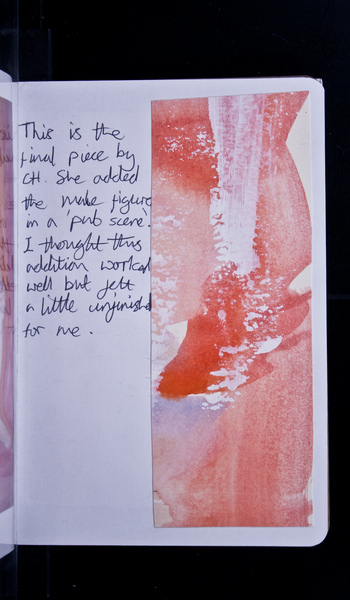 This is the
final piece by
CH. She added
the male figure
in a 'pub scene'.
I thought this
addition worked
well but felt
a little unfinished
for me.